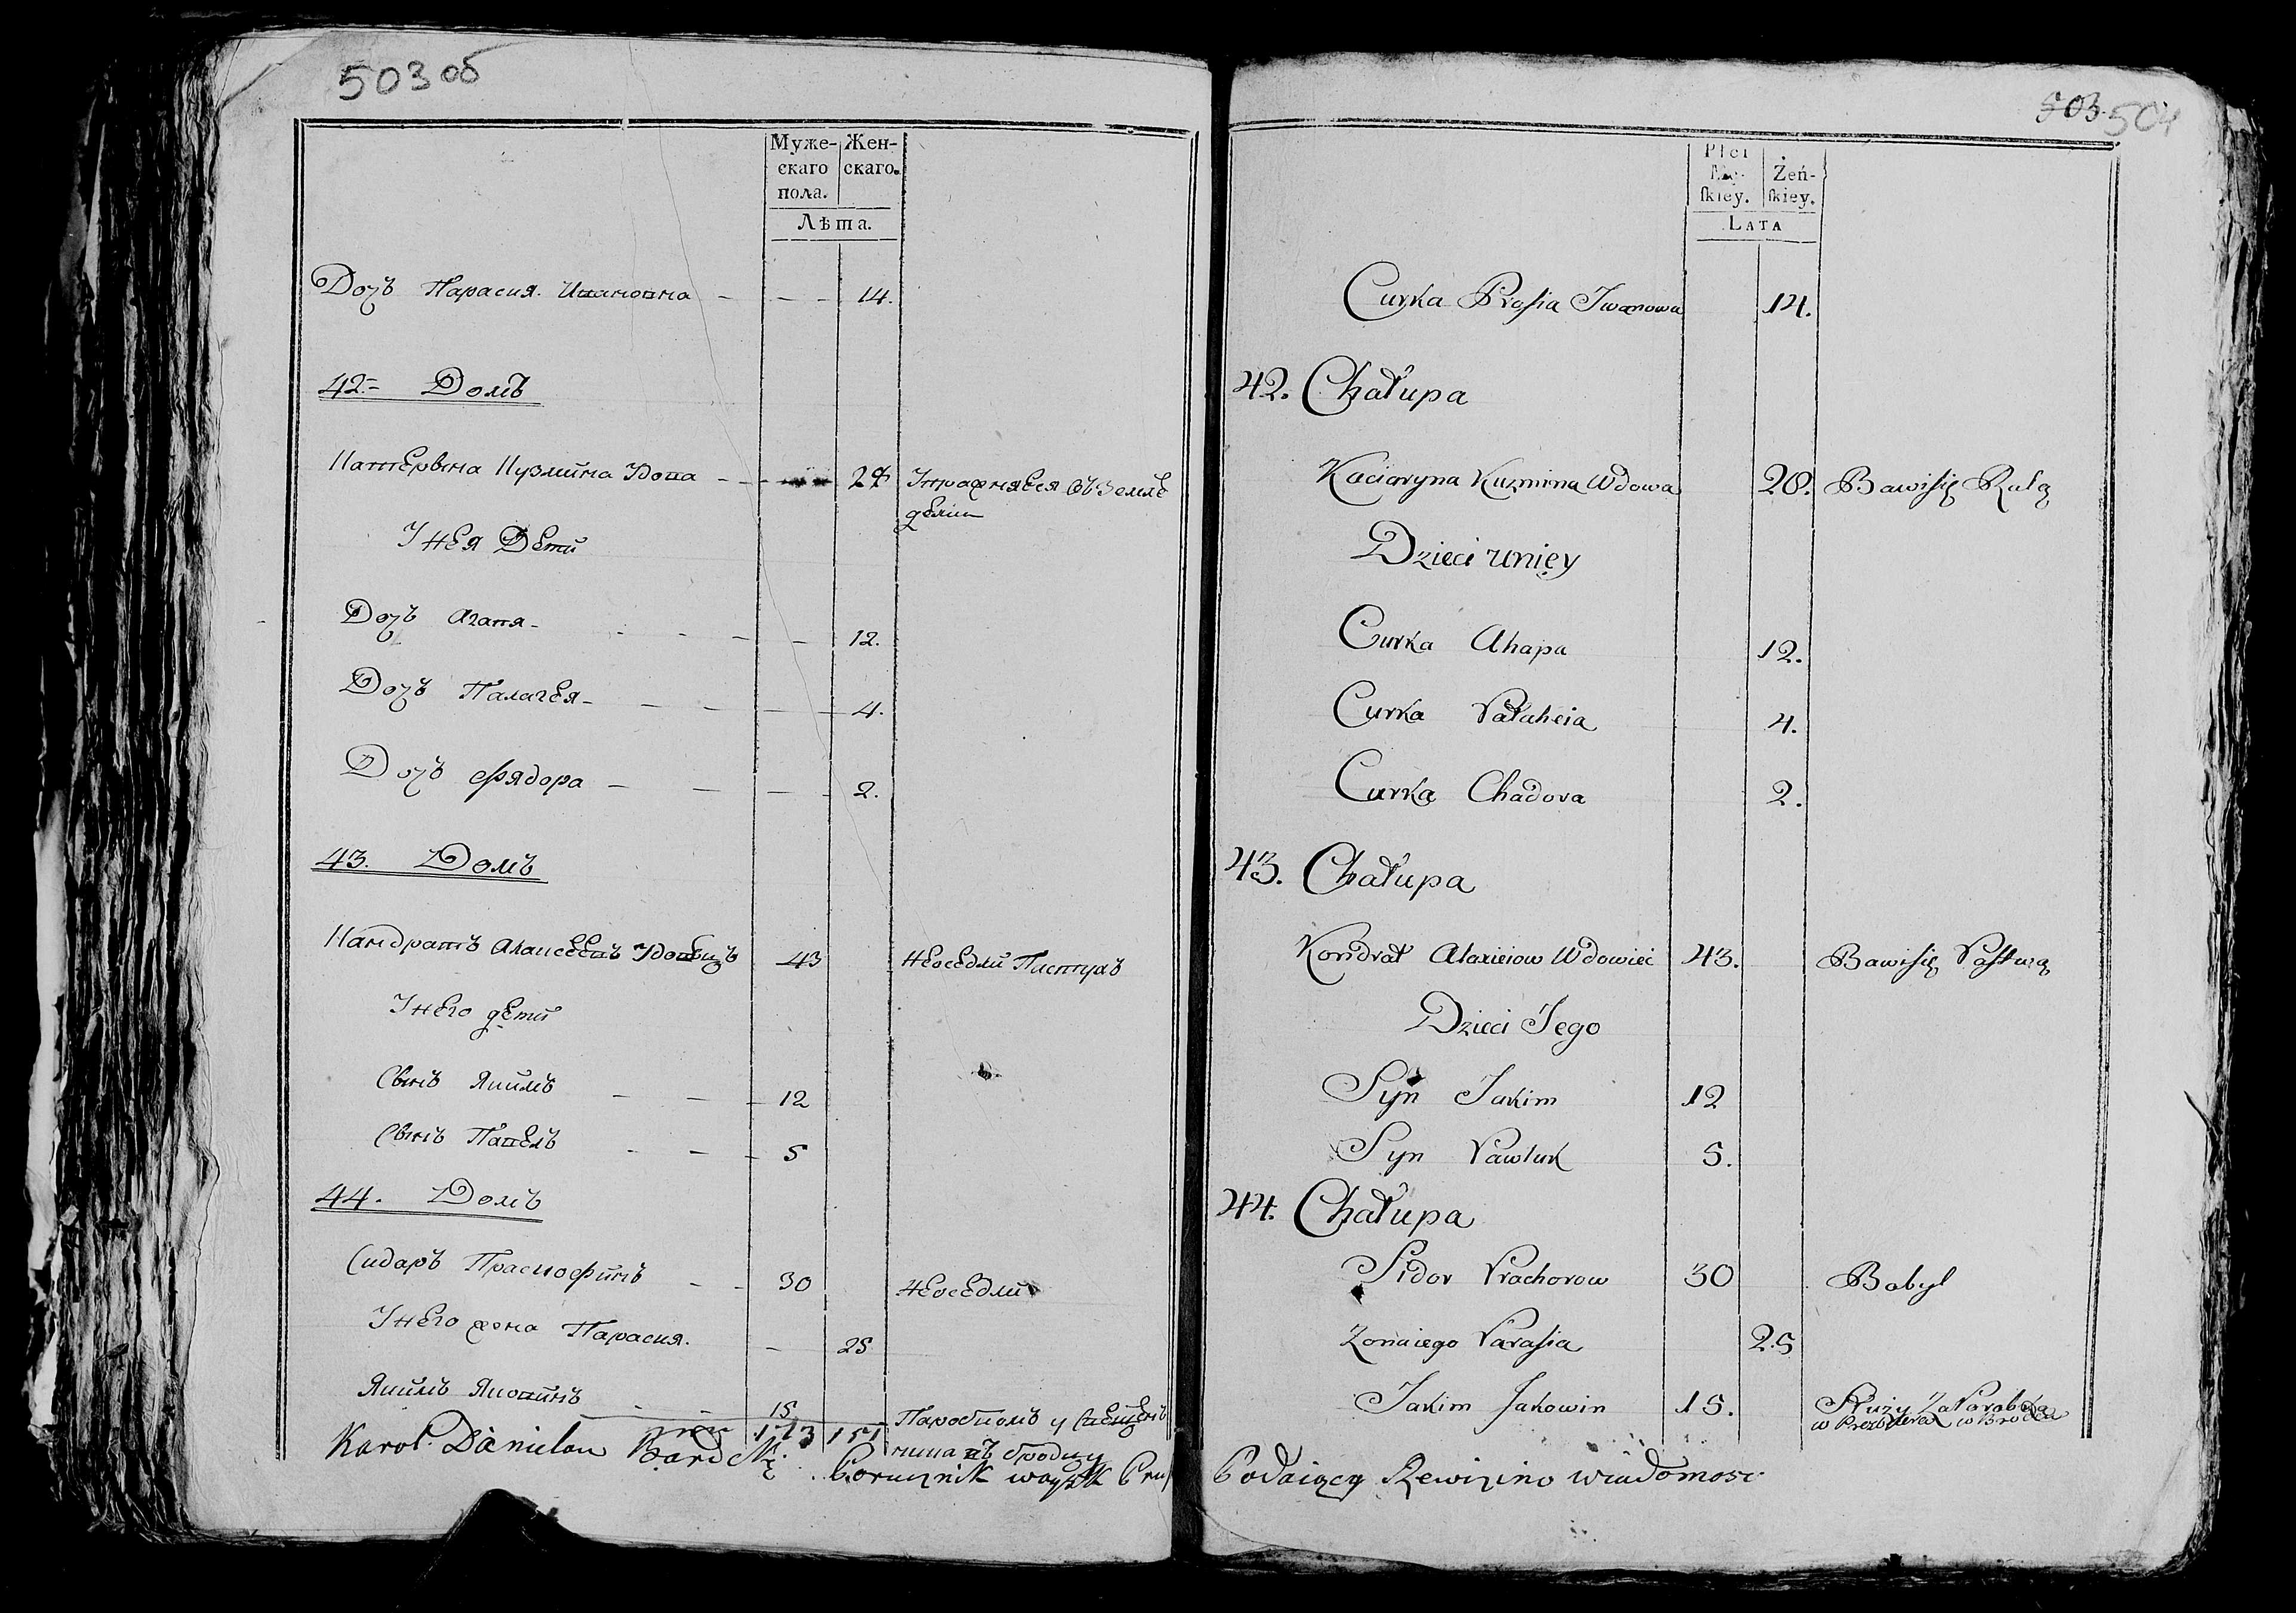 503 об
Муже- Жен-
скаго скаго.
пола.
Лѣта.
Дочь Парасия Ивановна - - - 14.
42 = Домъ
Катерына Кузмина Удова - - 28 Упражняется въ земле
делии
У нея Дети
Дочь Агапя - - - - - 12.
Дочь Палагея - - - - - 4.
Дочь Фядора - - - - 2.
43. Домъ
Кандратъ Алаксеевъ Удовецъ 43 Неоседли Пастухъ
У него дети
Сынъ Якимъ - - - 12
Сынъ Павелъ - - - 5
44. Домъ
Сидаръ - - 30 Неоседли
У него жена Парасия. - 25
Якимъ Яковинъ - - 15 Паробкомъ у Свещен
ника въ бродцу
173 151
Karol Danielow Porucznik woysk
503. 504
Płci
Mę- Żeń-
skiey. skiey.
LATA
Curka Prosia Iwanowa 14.
42. Chałupa
Kaciaryna Kuzmina Wdowa 28. Bawisię Rolą
Dzieci unięy
Curka Ahapa 12.
Curka Pałaheia 4.
Curka Chadora 2.
43. Chałupa
Kondrat Alaxieiow Wdowiec 43. Bawisię Pastwą
Dzieci Jego
Syn Jakim 12
Syn Pawluk 5.
44. Chałupa
Sidor Prachorow 30 Bobyl
Zonaiego Parasia 25
Jakim Jakowin 15. Służy Za Parobka
w Prezbitera w Brodca
Podaiący Rewizino wiadomosc